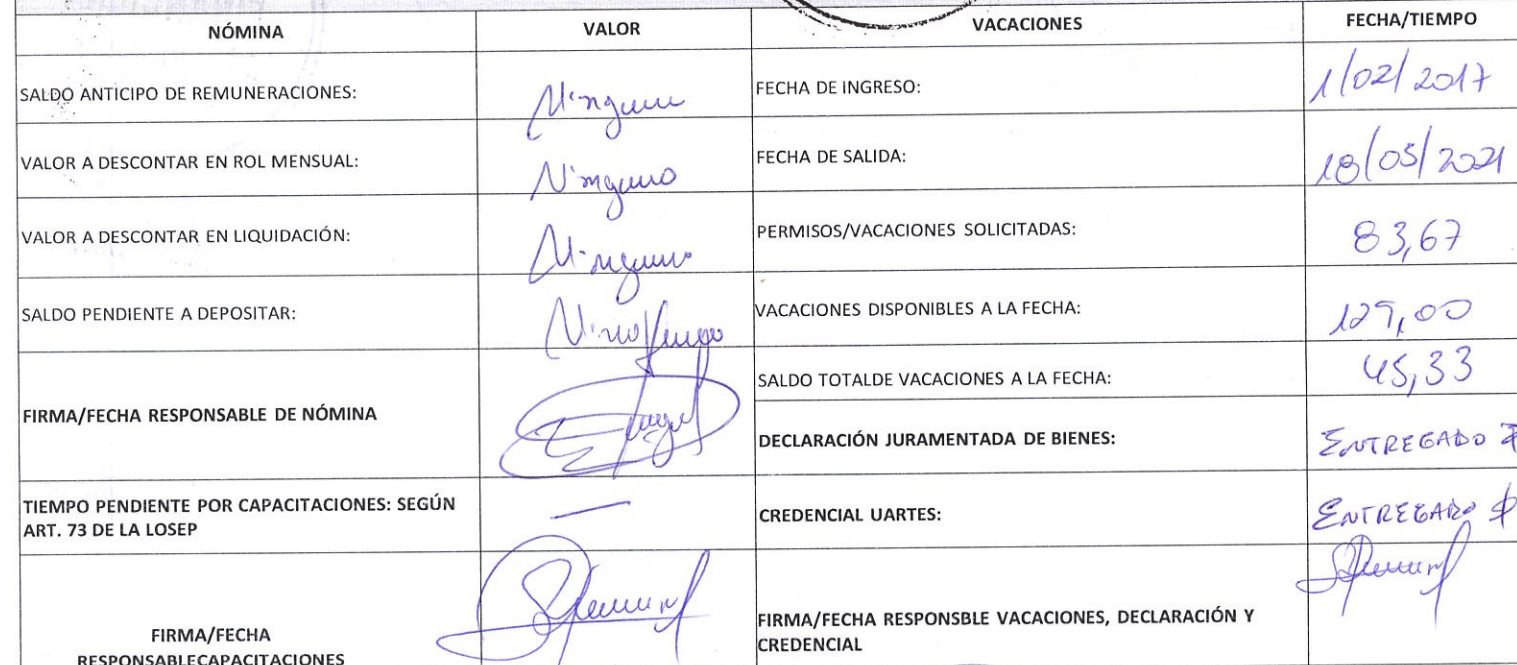 NÓMINA VALOR VACACIONES FECHA/TIEMPO
SALDO ANTICIPO DE REMUNERACIONES: Ninguno FECHA DE INGRESO: 1/02/2017
VALOR A DESCONTAR EN ROL MENSUAL: Ninguno FECHA DE SALIDA: 18/05/2021
VALOR A DESCONTAR EN LIQUIDACIÓN: Ninguno PERMISOS/VACACIONES SOLICITADAS: 83,67
SALDO PENDIENTE A DEPOSITAR: VACACIONES DISPONIBLES A LA FECHA: 129,00
SALDO TOTALDE VACACIONES A LA FECHA: 45,33
FIRMA/FECHA RESPONSABLE DE NÓMINA
DECLARACIÓN JURAMENTADA DE BIENES: ENTREGADO
TIEMPO PENDIENTE POR CAPACITACIONES: SEGÚN
ART. 73 DE LA LOSEP — CREDENCIAL UARTES: ENTREGADO
FIRMA/FECHA
RESPONSABLECAPACITACIONES
FIRMA/FECHA RESPONSBLE VACACIONES, DECLARACIÓN Y
CREDENCIAL